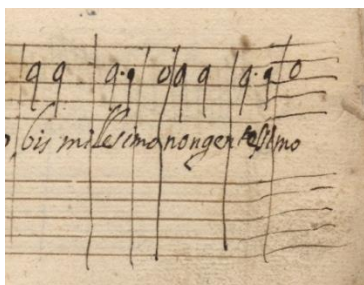 bis milesimo nongentesimo